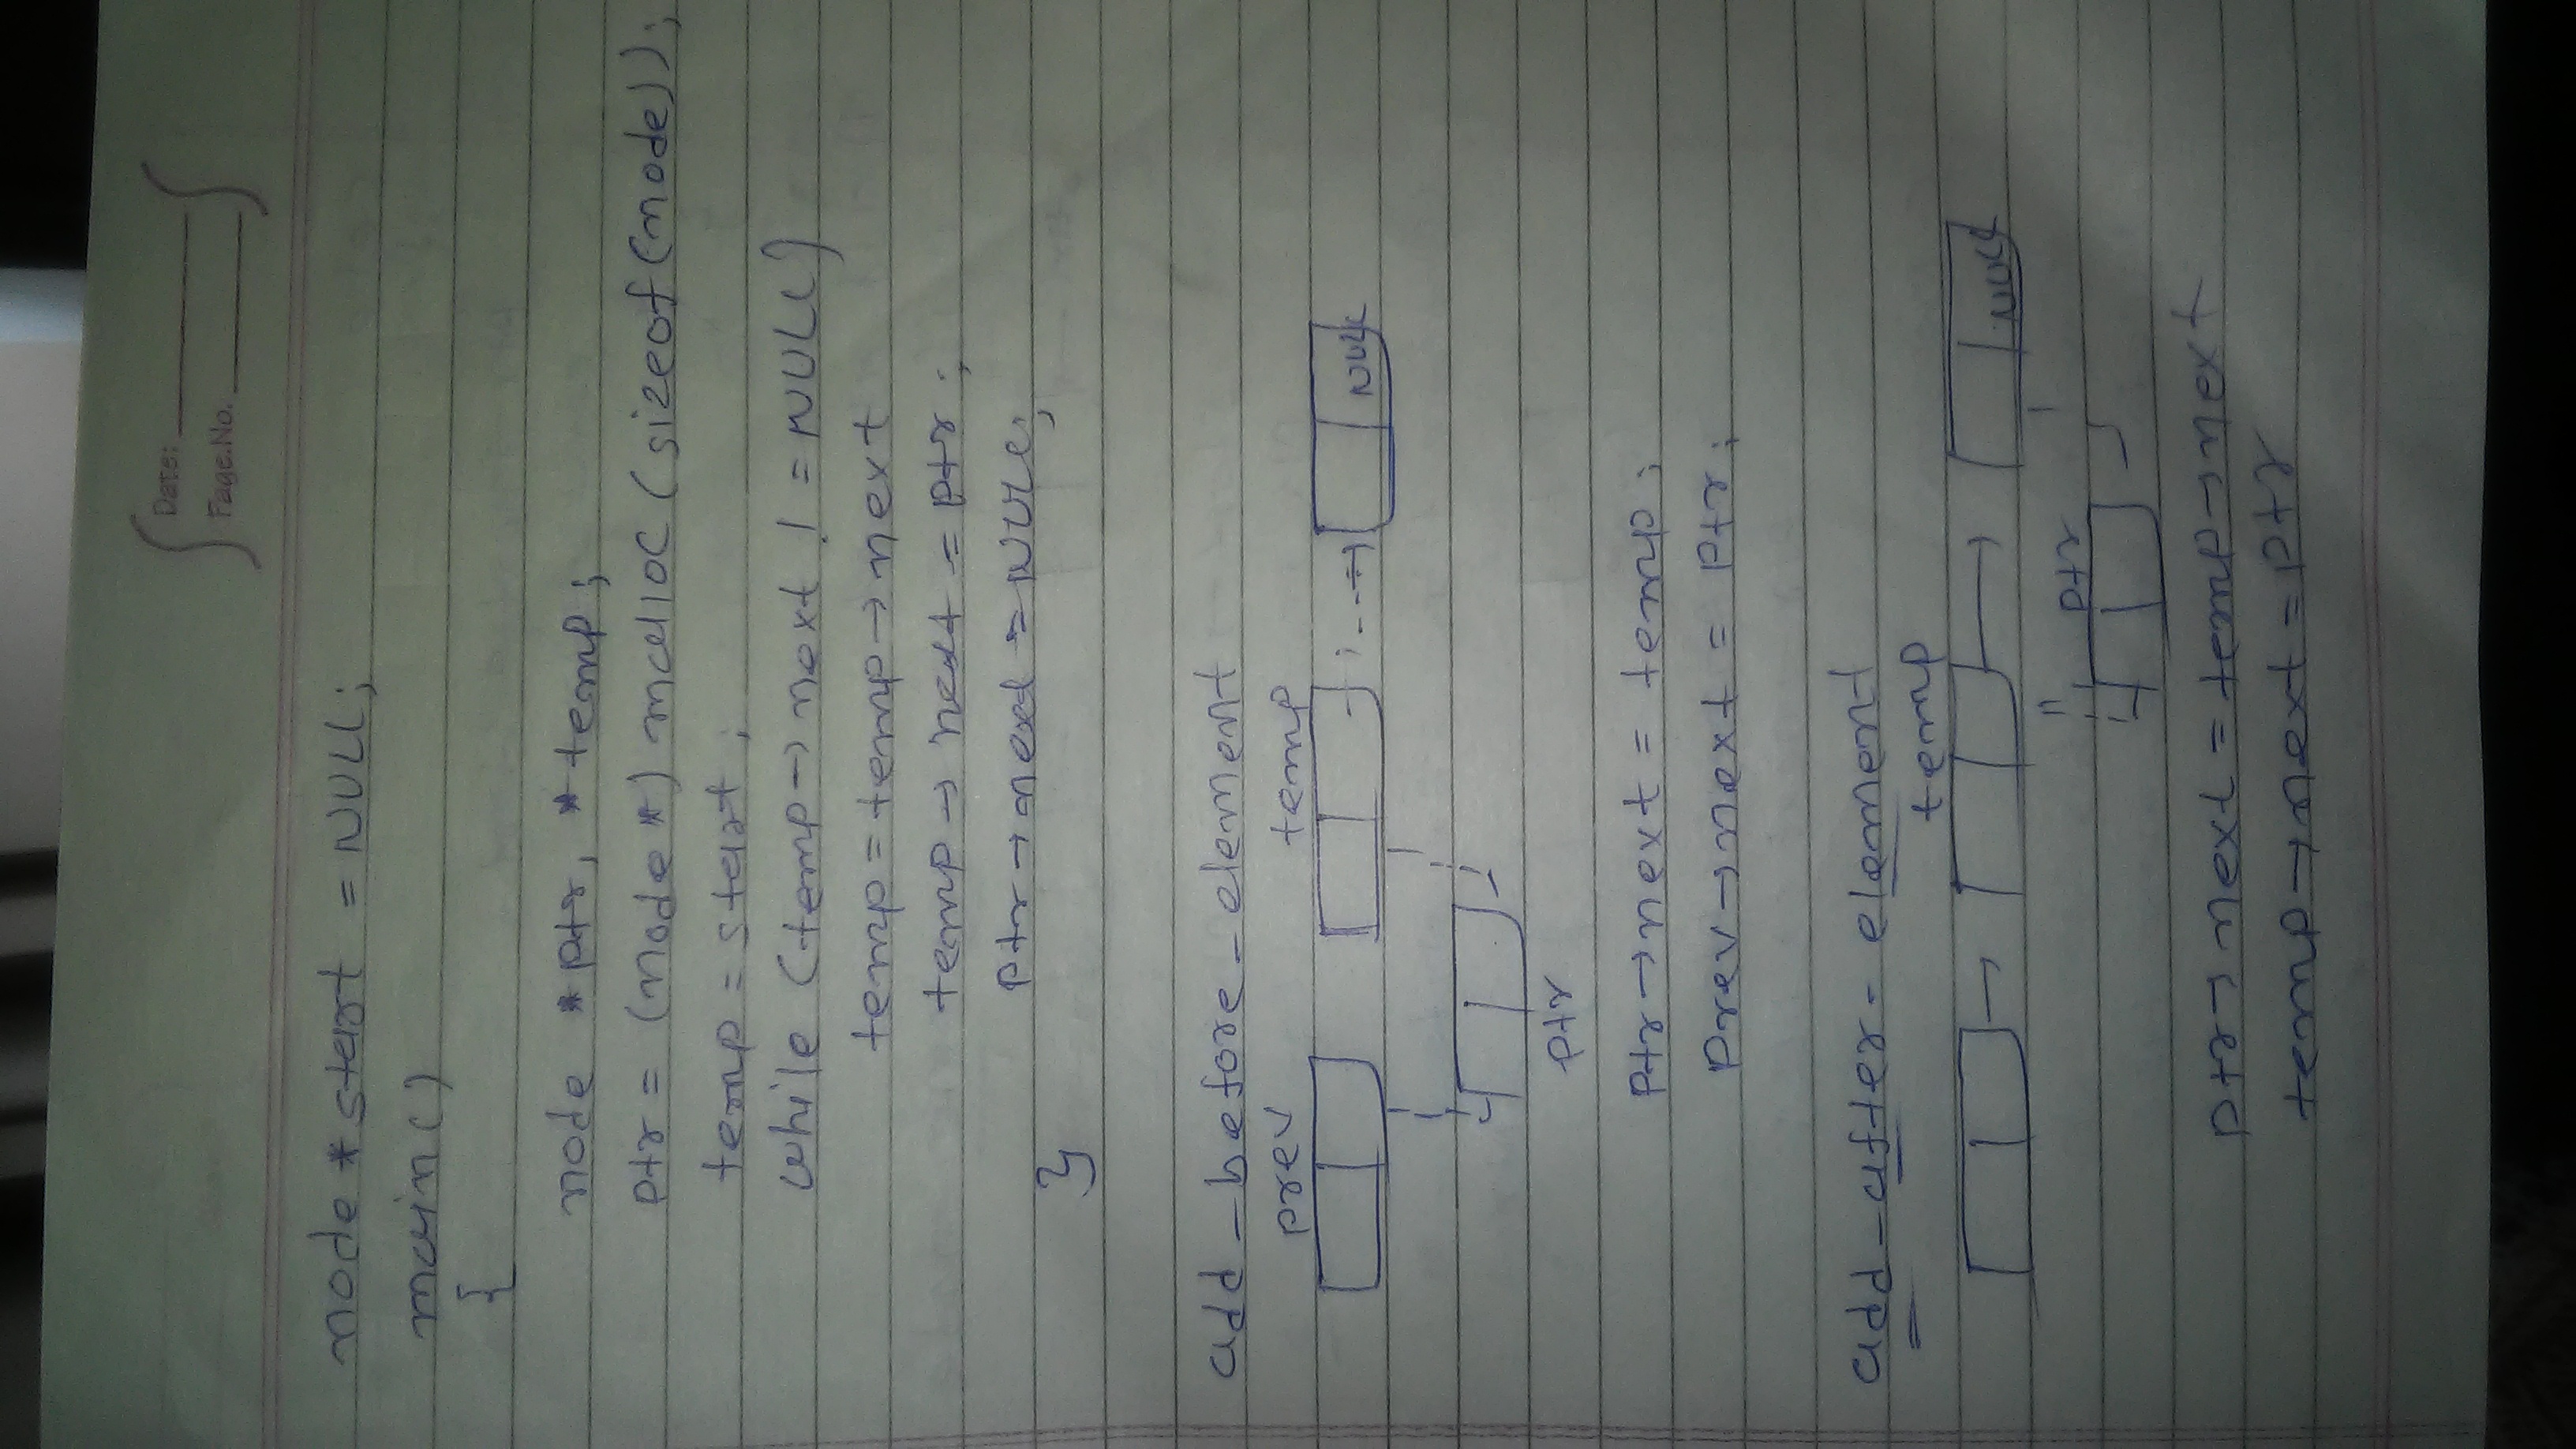 Date:
Page.No.
node *start = NULL;
main()
{
node *ptr, *temp;
ptr = (node*) malloc (sizeof(node));
temp = start;
while (temp→next != NULL)
temp = temp→next
temp→next = ptr;
ptr→next = NULL;
}
add_before_element
prev temp
NULL
ptr
ptr→next = temp;
prev→next = ptr;
add_after_element
temp
NULL
ptr
ptr→next = temp→next
temp→next = ptr